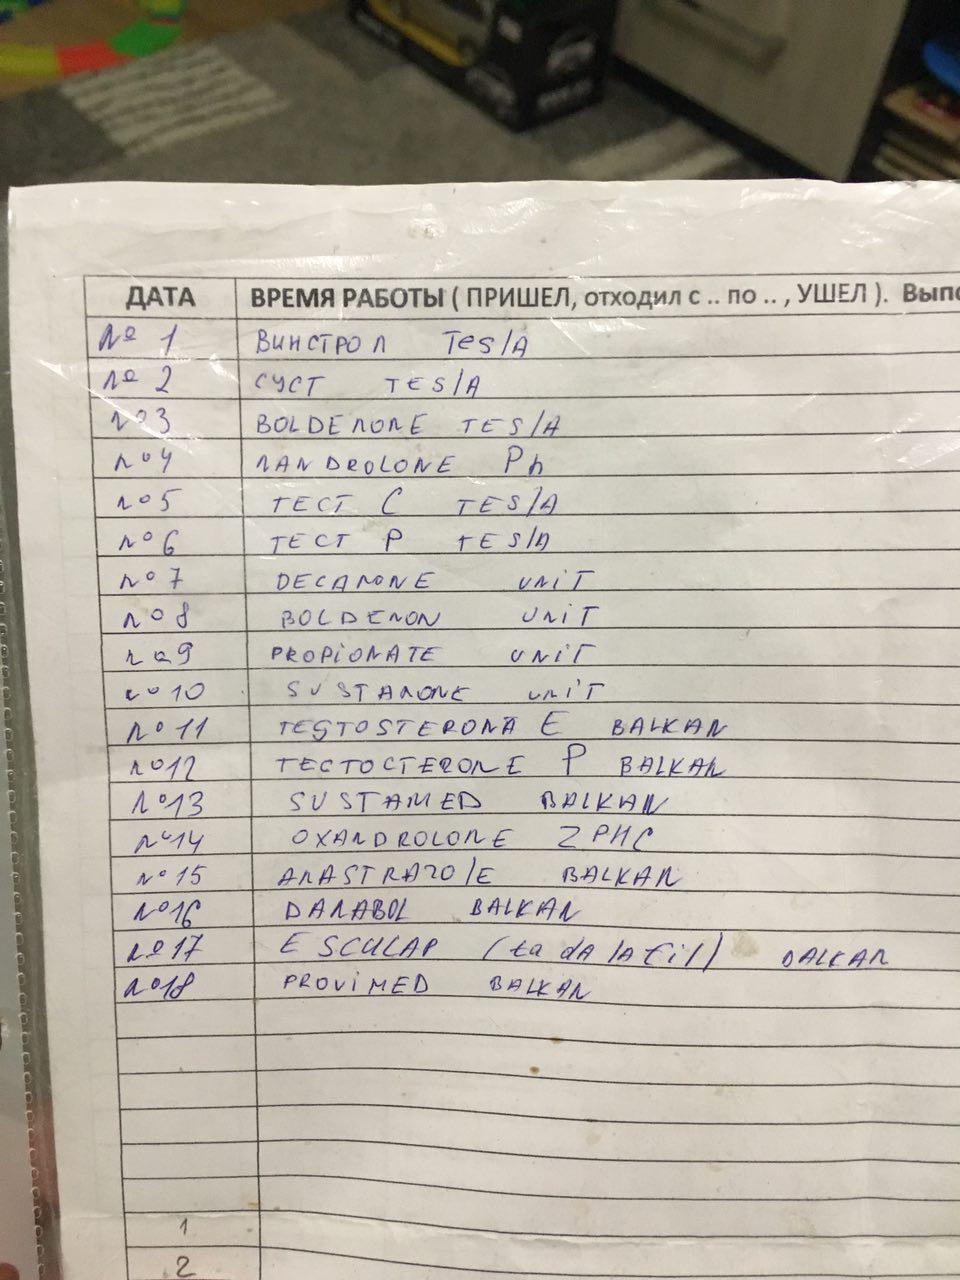 ДАТА ВРЕМЯ РАБОТЫ ( ПРИШЕЛ, отходил с .. по .. , УШЕЛ ). Выпо
№ 1 ВИНСТРОЛ Tes/A
№ 2 СУСТ TES/A
№3 BOLDENONE TES/A
№4 NANDROLONE Ph
№5 ТЕСТ C TES/A
№6 ТЕСТ P TES/A
№7 DECANONE UNiT
№8 BOLDENON UNiT
№9 PROPiONATE UNiT
№10 SUSTANONE UNiT
№11 TESTOSTERONA E BALKAN
№12 TECTOCTERONE P BALKAN
№13 SUSTAMED BALKAN
№14 OXANDROLONE ZPHC
№15 ANASTRAZOlE BALKAN
№16 DANABOL BALKAN
№17 ESCULAP (tadalafil) BALKAN
№18 PROViMED BALKAN
1
2